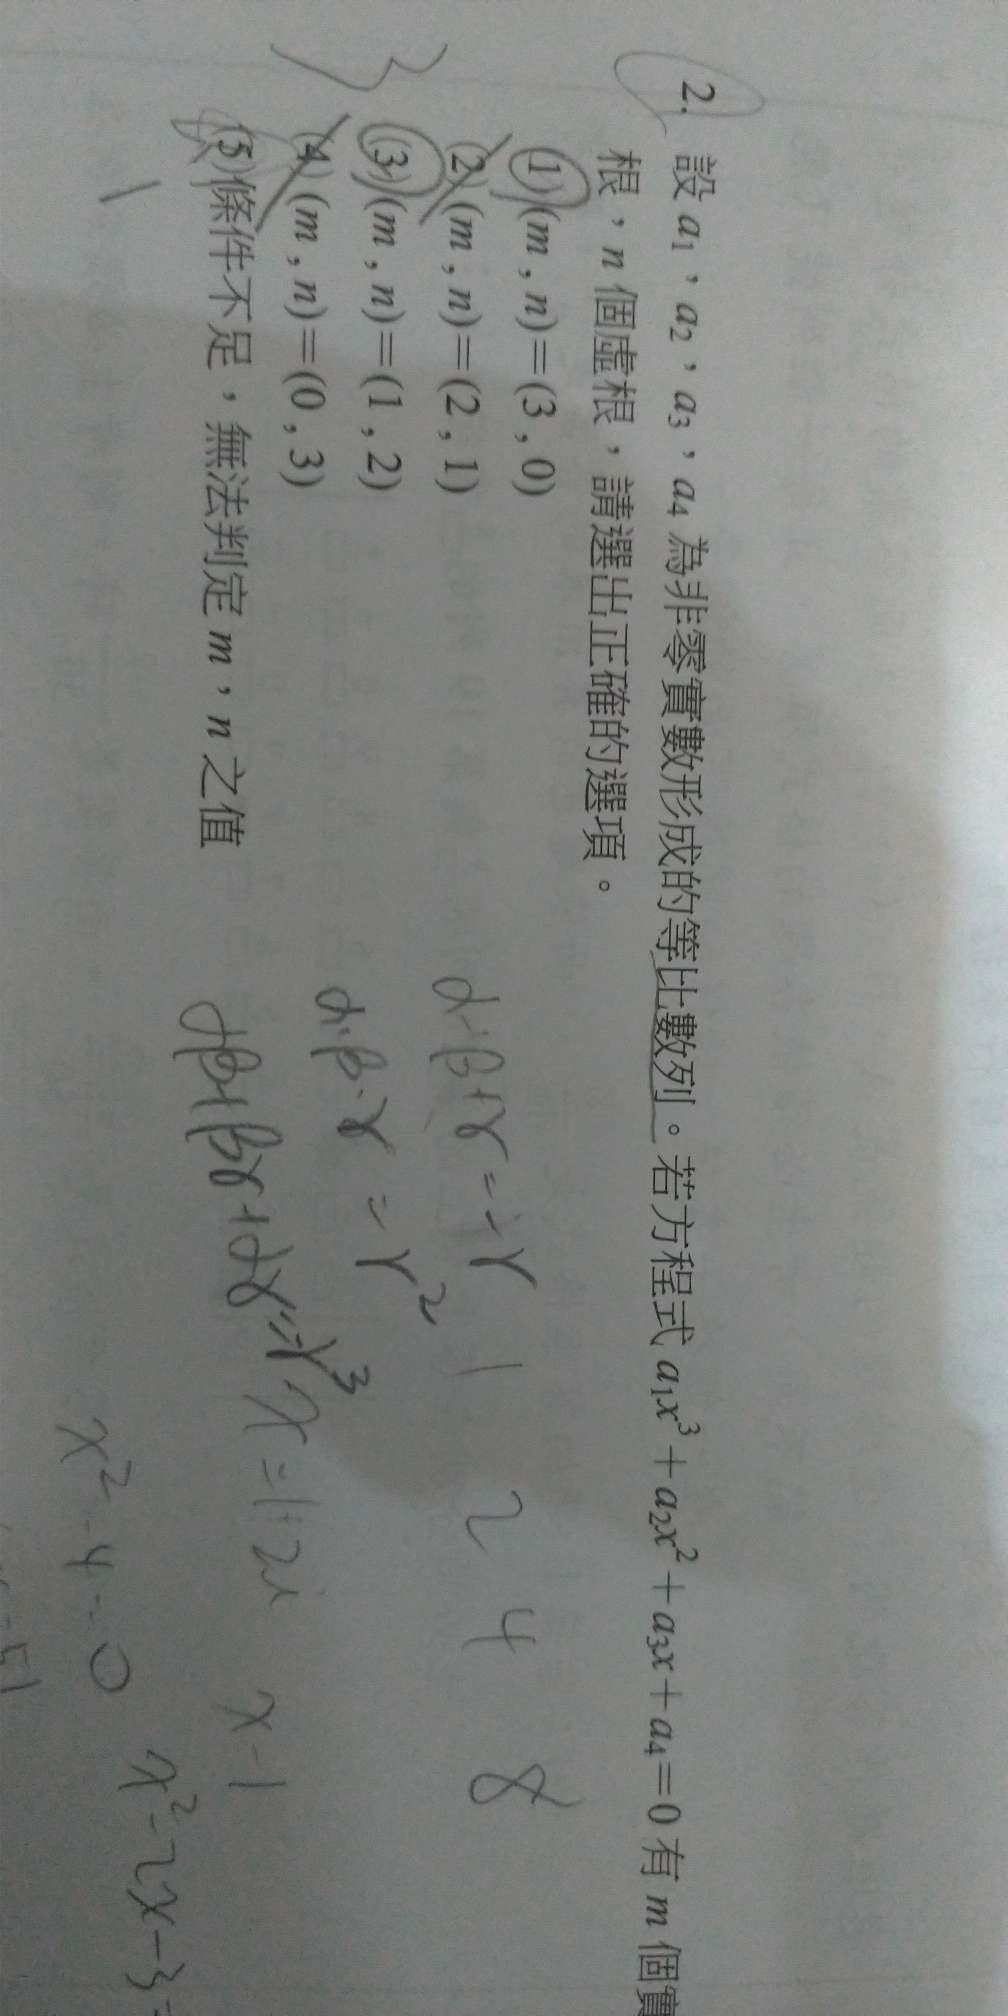 2. 設 a₁，a₂，a₃，a₄ 為非零實數形成的等比數列。若方程式 a₁x³＋a₂x²＋a₃x＋a₄＝0 有 m 個實
根，n 個虛根，請選出正確的選項。
(1)(m , n)＝(3 , 0)
(2)(m , n)＝(2 , 1)
(3)(m , n)＝(1 , 2)
(4)(m , n)＝(0 , 3)
(5)條件不足，無法判定 m，n 之值
1 2 4 8
α+β+γ=-r
α·β·γ=-r²
αβ+βγ+αγ=-r³
x=1+2i
x-1
x²-2x-3
x²-4=0